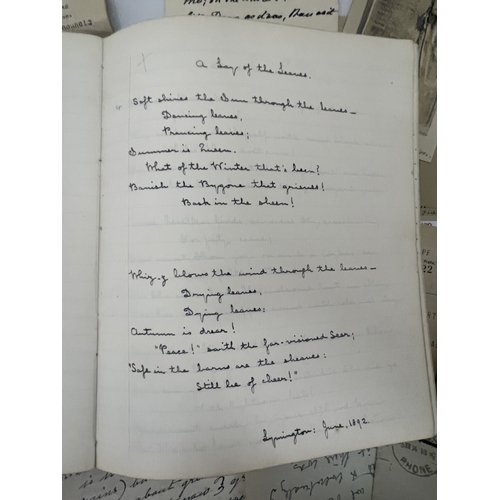 A Lay of the Leaves.
Soft shines the Sun through the leaves—
Dancing leaves,
Prancing leaves;
Summer is Queen.
What of the Winter that's been?
Banish the Bygone that grieves!
Bask in the sheen!
Whiz-z blows the wind through the leaves—
Drying leaves,
Dying leaves;
Autumn is drear!
"Peace!" saith the far-visioned Seer;
"Safe in the barns are the sheaves:
Still be of cheer!"
Lymington: June, 1892.
PHONE